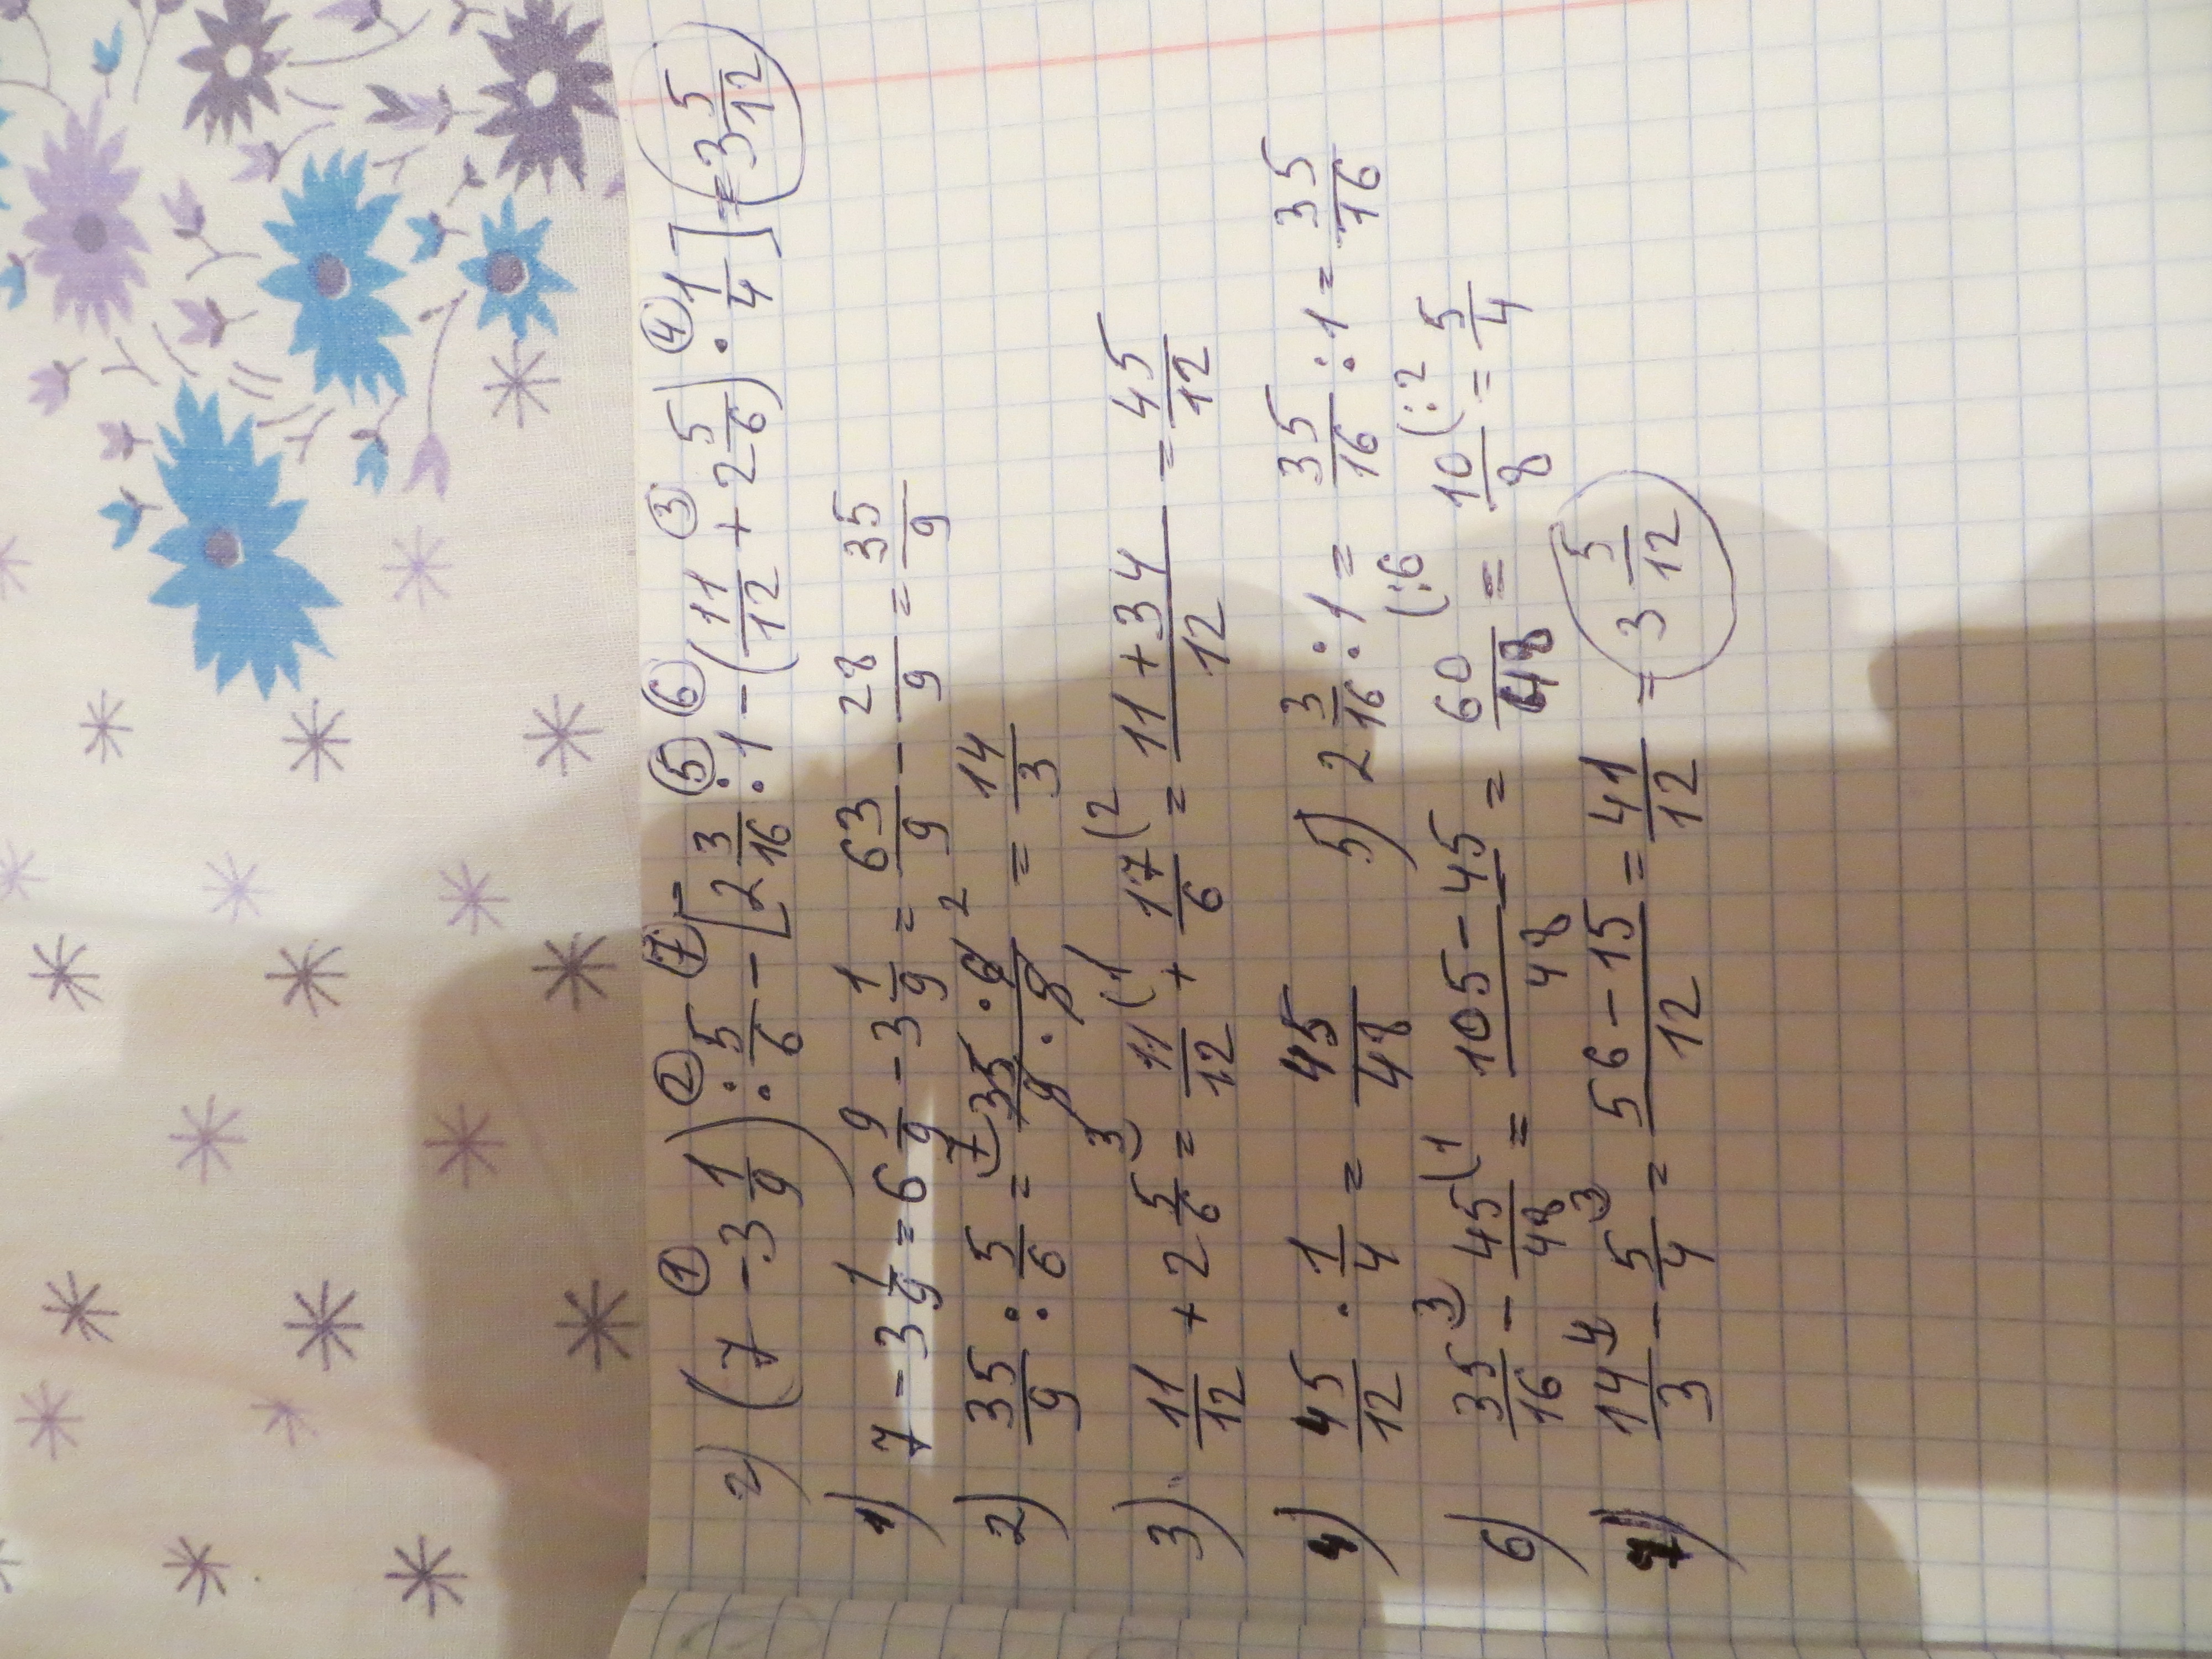 2) (7 - 3 1/9) : 5/6 - [2 3/16 : 1 - (11/12 + 2 5/6) · 1/4] = 3 5/12
① ② ⑦ ⑤ ⑥ ③ ④
1) 7 - 3 1/9 = 6 9/9 - 3 1/9 = 63/9 - 28/9 = 35/9
2) 35/9 : 5/6 = 7) 35 · 6 2 / 9 · 5 3) (1 = 14/3
3) 11/12 + 2 5/6 = 11/12 (1 + 17/6 (2 = 11 + 34 / 12 = 45/12
4) 45/12 · 1/4 = 45/48 5) 2 3/16 : 1 = 35/16 : 1 = 35/16
6) 35/16 (3 - 45/48 (1 = 105 - 45 / 48 = 60/48 (:6 = 10/8 (:2 = 5/4
7) 14/3 (4 - 5/4 (3 = 56 - 15 / 12 = 41/12 = 3 5/12